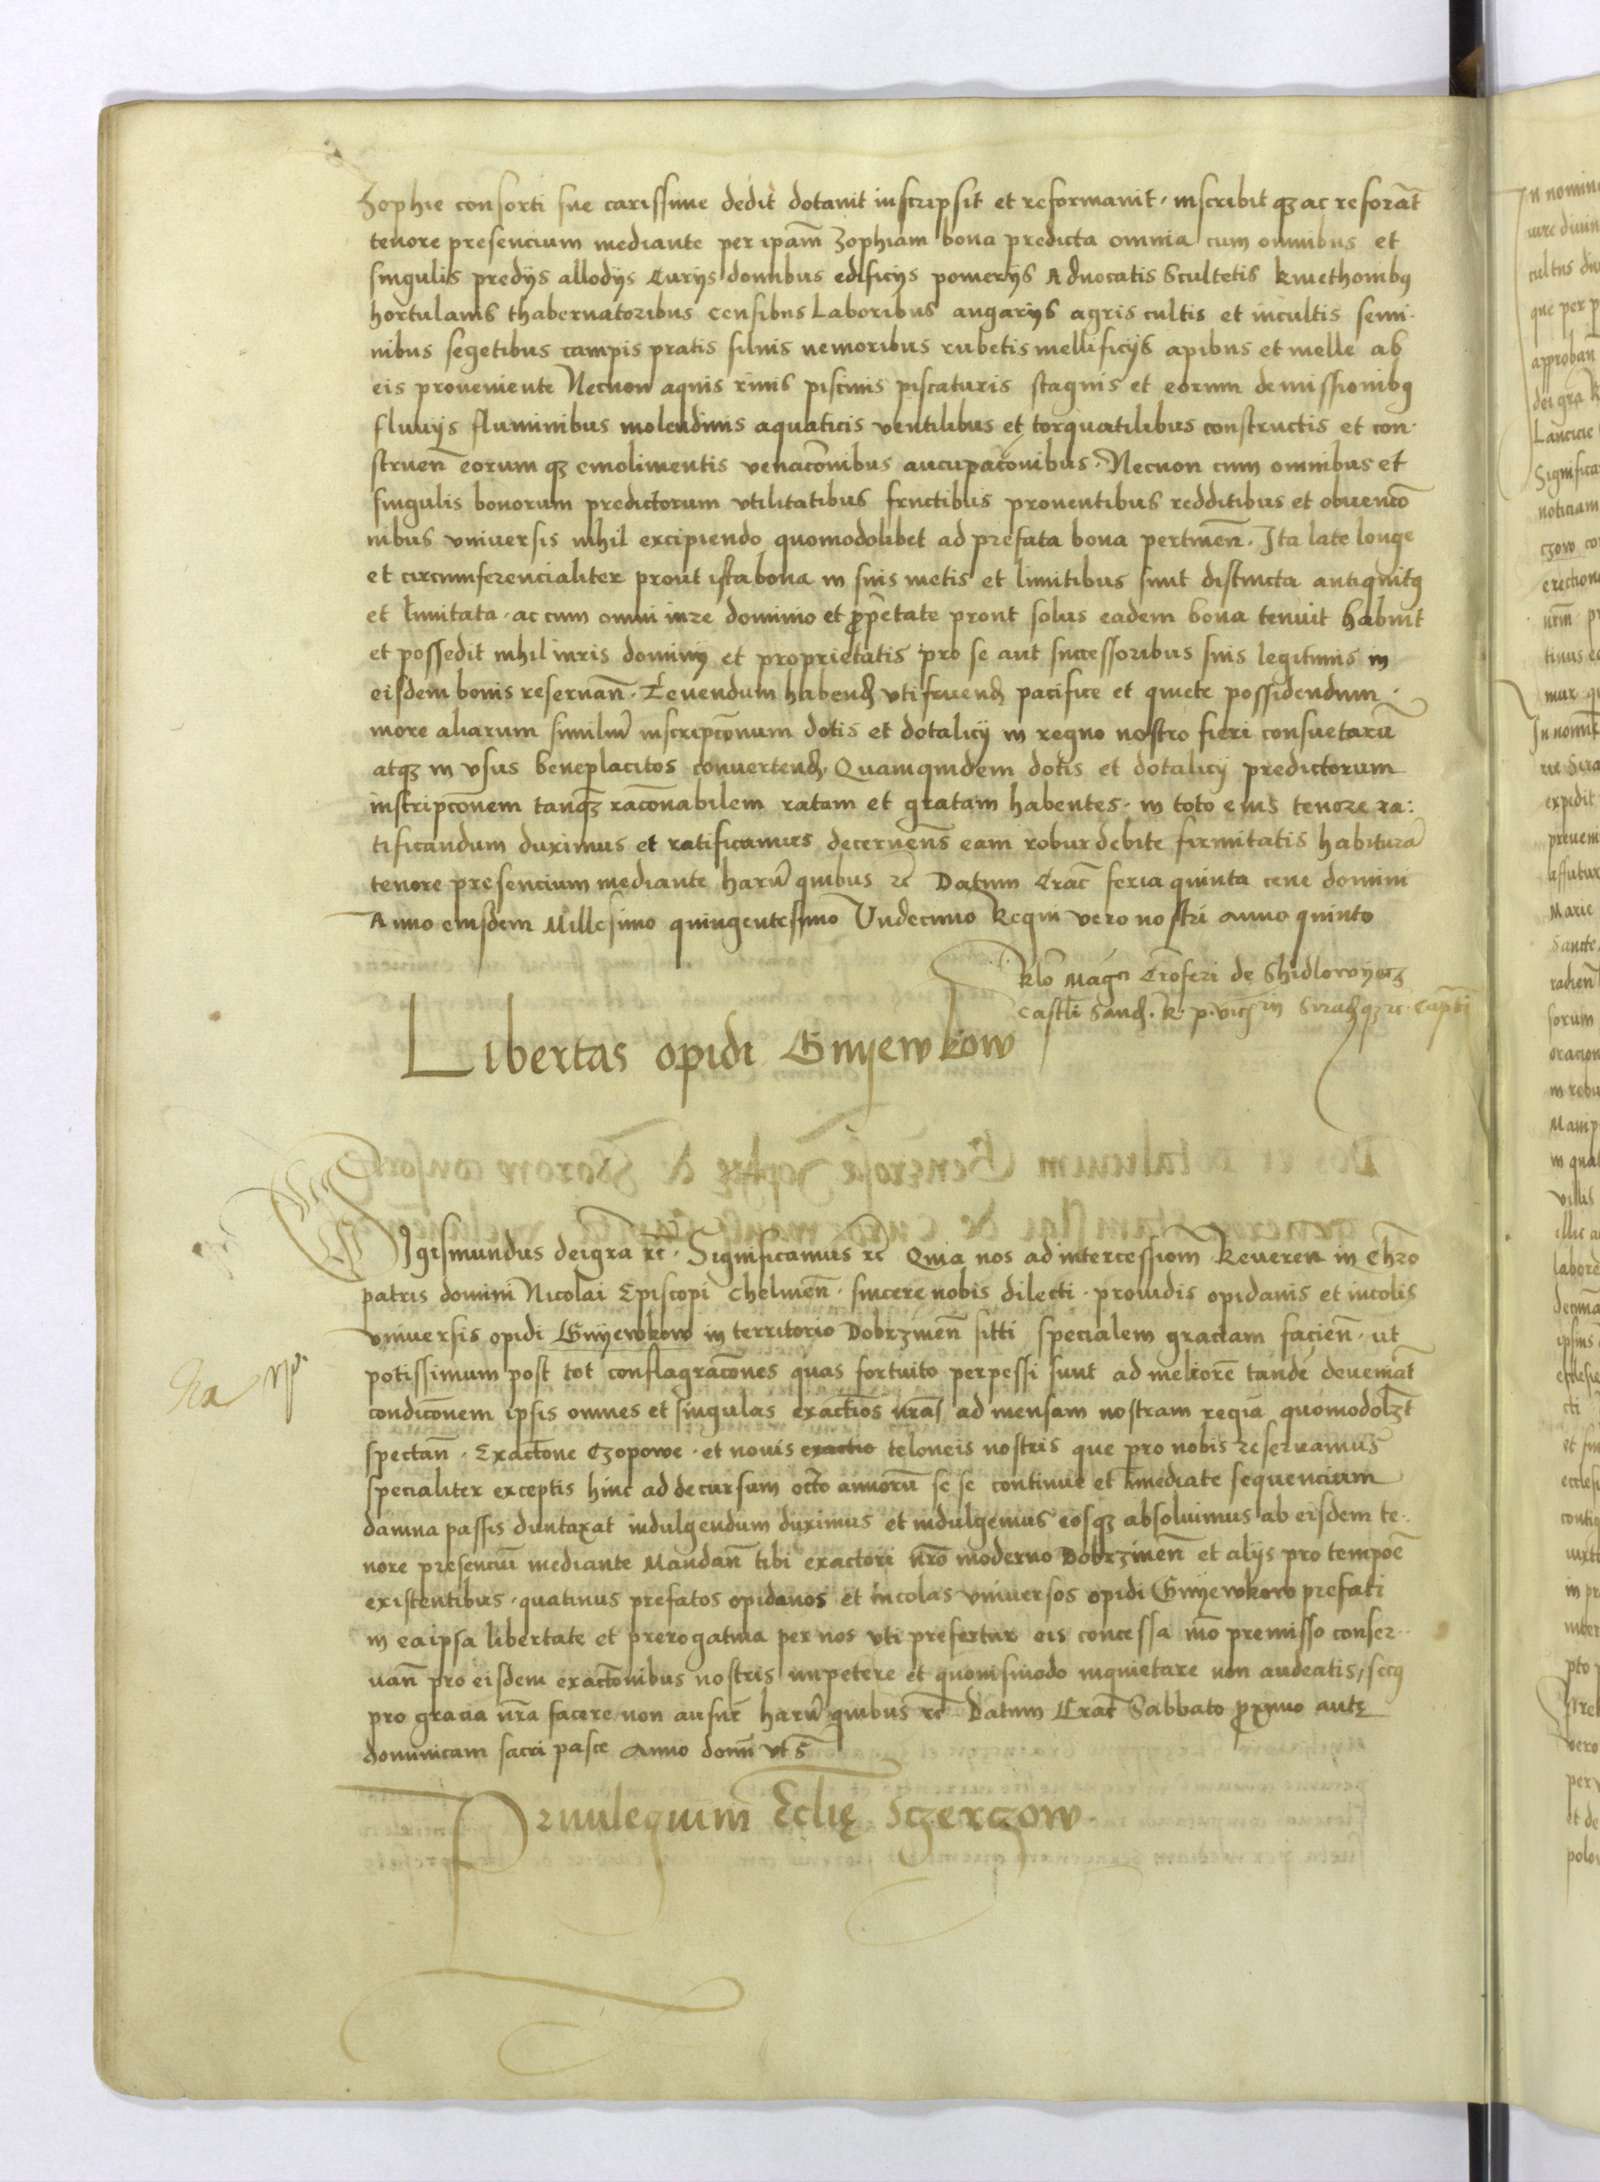 Zophie consorti sue carissime dedit dotavit inscripsit et reformavit, inscribit qz ac reforāt
tenore presencium mediante per ipām Zophiam bona predicta omnia cum omnibus et
singulis predijs allodijs Curijs domibus edificijs pomerijs Aduocatis Scultetis kmethonibq
hortulanis thabernatoribus censibus Laboribus angarijs agris cultis et incultis semi-
nibus segetibus campis pratis siluis nemoribus rubetis mellificijs apibus et melle ab
eis proueniente Necnon aquis riuis piscinis piscaturis stagnis et eorum demissionibq
fluuijs fluminibus molendinis aquaticis ventilibus et torquatilibus constructis et con-
struen̄ eorum qz emolimentis venacōnibus aucupacōnibus. Necnon cum omnibus et
singulis bonorum predictorum vtilitatibus fructibus prouentibus redditibus et obuencō
nibus vniuersis nihil excipiendo quomodolibet ad prefata bona pertinen̄. Ita late longe
et circumferencialiter prout ista bona in suis metis et limitibus sunt distincta antiquitq
et limitata. ac cum omni iure dominio et ꝓp̄etate prout solus eadem bona tenuit habuit
et possedit nihil iuris dominij et proprietatis pro se aut successoribus suis legitimis in
eisdem bonis reseruan̄. Tenendum habend̄ vtifruend̄ pacifice et quiete possidendum.
more aliarum similiū inscripcōnum dotis et dotalicij in regno nostro fieri consuetarū
atqz in vsus beneplacitos conuertend̄. Quamquidem dotis et dotalicij predictorum
inscripcōnem tanqz racōnabilem ratam et gratam habentes. in toto eius tenore ra:
tificandum duximus et ratificamus decernen̄s eam robur debite firmitatis habiturā
tenore presencium mediante harū quibus rc Datum Crac̄ feria quinta cene domini
Anno eiusdem Millesimo quingentesimo Vndecimo Regni vero nostri anno quinto
Rlō Magci Cr̄oferi de Shidlowyecz
castll̄i Sand̄. R. p. vicz
Libertas opidi Gnyewkow
Sigismundus dei gra rc̄. Significamus rc Quia nos ad intercessiom̄ Reueren in Chr̄o
patris domini Nicolai Episcopi Chelmen̄. sincere nobis dilecti. prouidis opidanis et incolis
vniuersis opidi Gnyewkow in territorio Dobrzinen̄ sitti specialem graciam facien̄. ut
potissimum post tot conflagracōnes quas fortuito perpessi sunt ad meliorē tandē deueniāt
condicōnem ipsis omnes et singulas exactiōs nr̄as ad mensam nostram regiā quomodolzt
spectan̄. Exactōne Czopowe. et nouis exactio teloneis nostris que pro nobis reseruamus
specialiter exceptis hinc ad decursum octo annorū se se continue et īmediate sequencium
damna passis duntaxat indulgendum duximus et indulgemus eosqz absoluimus ab eisdem te-
nore presenciū mediante Mandan̄ tibi exactori nr̄o moderno Dobrzinen̄ et alijs pro tempōe
existentibus. quatinus prefatos opidanos et incolas vniuersos opidi Gnyewkow prefati
in ea ipsa libertate et prerogatiua per nos vti prefertur eis concessa mō premisso conser-
uan̄ pro eisdem exactōnibus nostris impetere et quouismodo inquietare non audeatis, secq
pro gracia nr̄a facere non ausur̄ harū quibus rc̄ Datum Crac̄ Sabbato ꝓximo antę
dominicam sacri pasce Anno domī vt s̄
Priuilegium Ecl̄ię Sczerczow